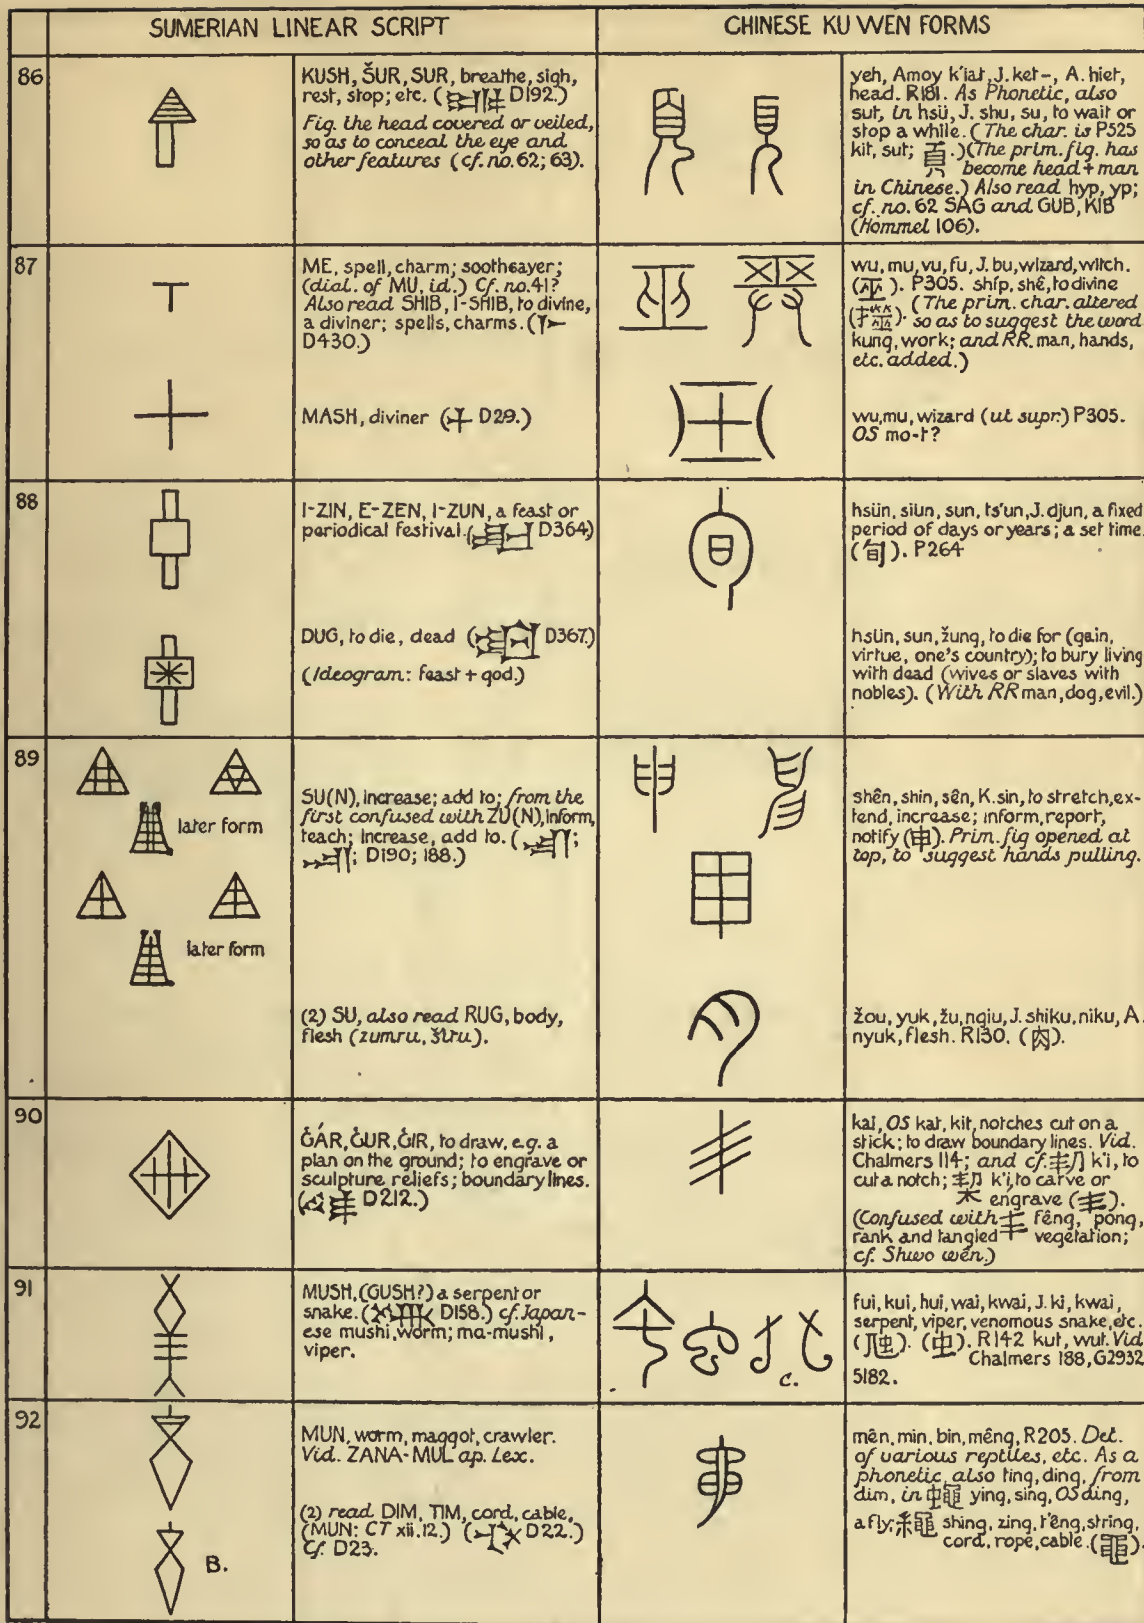 SUMERIAN LINEAR SCRIPT
CHINESE KU WEN FORMS
86
KUSH, ŠUR, SUR, breathe, sigh,
rest, stop; etc. ( D192.)
Fig. the head covered or veiled,
so as to conceal the eye and
other features (cf. no. 62; 63).
yeh, Amoy k'iat, J. ket-, A. hiet,
head. R181. As Phonetic, also
sut, in hsü, J. shu, su, to wait or
stop a while. (The char. is P525
kit, sut; 頁.) (The prim. fig. has
become head + man
in Chinese.) Also read hyp, yp;
cf. no. 62 SAG and GUB, KIB
(Hommel 106).
87
ME, spell, charm; soothsayer;
(dial. of MU, id.) Cf. no. 41?
Also read SHIB, I-SHIB, to divine,
a diviner; spells, charms. (
D430.)
wu, mu, vu, fu, J. bu, wizard, witch.
(巫). P305. ship, shê, to divine
( ). (The prim. char. altered
so as to suggest the word
kung, work; and RR. man, hands,
etc. added.)
MASH, diviner ( D29.)
wu, mu, wizard (ut supr.) P305.
OS mo-t?
88
I-ZIN, E-ZEN, I-ZUN, a feast or
periodical festival. ( D364)
hsün, siun, sun, ts'un, J. djun, a fixed
period of days or years; a set time.
(旬). P264
DUG, to die, dead ( D367.)
(Ideogram: feast + god.)
hsün, sun, žung, to die for (gain,
virtue, one's country); to bury living
with dead (wives or slaves with
nobles). (With RR man, dog, evil.)
89
later form
later form
SU(N), increase; add to; from the
first confused with ZU(N), inform,
teach; increase, add to. ( ;
; D190; 188.)
shên, shin, sên, K. sin, to stretch, ex-
tend, increase; inform, report,
notify (申). Prim. fig opened at
top, to suggest hands pulling.
(2) SU, also read RUG, body,
flesh (zumru, šîru).
žou, yuk, žu, ngiu, J. shiku, niku, A.
nyuk, flesh. R130. (肉).
90
ĠÁR, ĠUR, ĠIR, to draw, e.g. a
plan on the ground; to engrave or
sculpture reliefs; boundary lines.
( D212.)
kai, OS kat, kit, notches cut on a
stick; to draw boundary lines. Vid.
Chalmers 114; and cf. 㓞 k'i, to
cut a notch; 栔 k'i, to carve or
engrave (丯).
(Confused with 丰 fêng, pong,
rank and tangled vegetation;
cf. Shwo wên.)
91
MUSH, (GUSH?) a serpent or
snake. ( D158.) cf. Japan-
ese mushi, worm; ma-mushi,
viper.
c.
fui, kui, hui, wai, kwai, J. ki, kwai,
serpent, viper, venomous snake, etc.
(虺). (虫). R142 kut, wut. Vid.
Chalmers 188, G2932
5182.
92
B.
MUN, worm, maggot, crawler.
Vid. ZANA-MUL ap. Lex.
(2) read DIM, TIM, cord, cable,
(MUN: CT xii. 12.) ( D22.)
Cf. D23.
mên, min, bin, mêng, R205. Det.
of various reptiles, etc. As a
phonetic, also ting, ding, from
dim, in 蠅 ying, sing, OS ding,
a fly; 繩 shing, zing, t'êng, string,
cord, rope, cable. (黽).